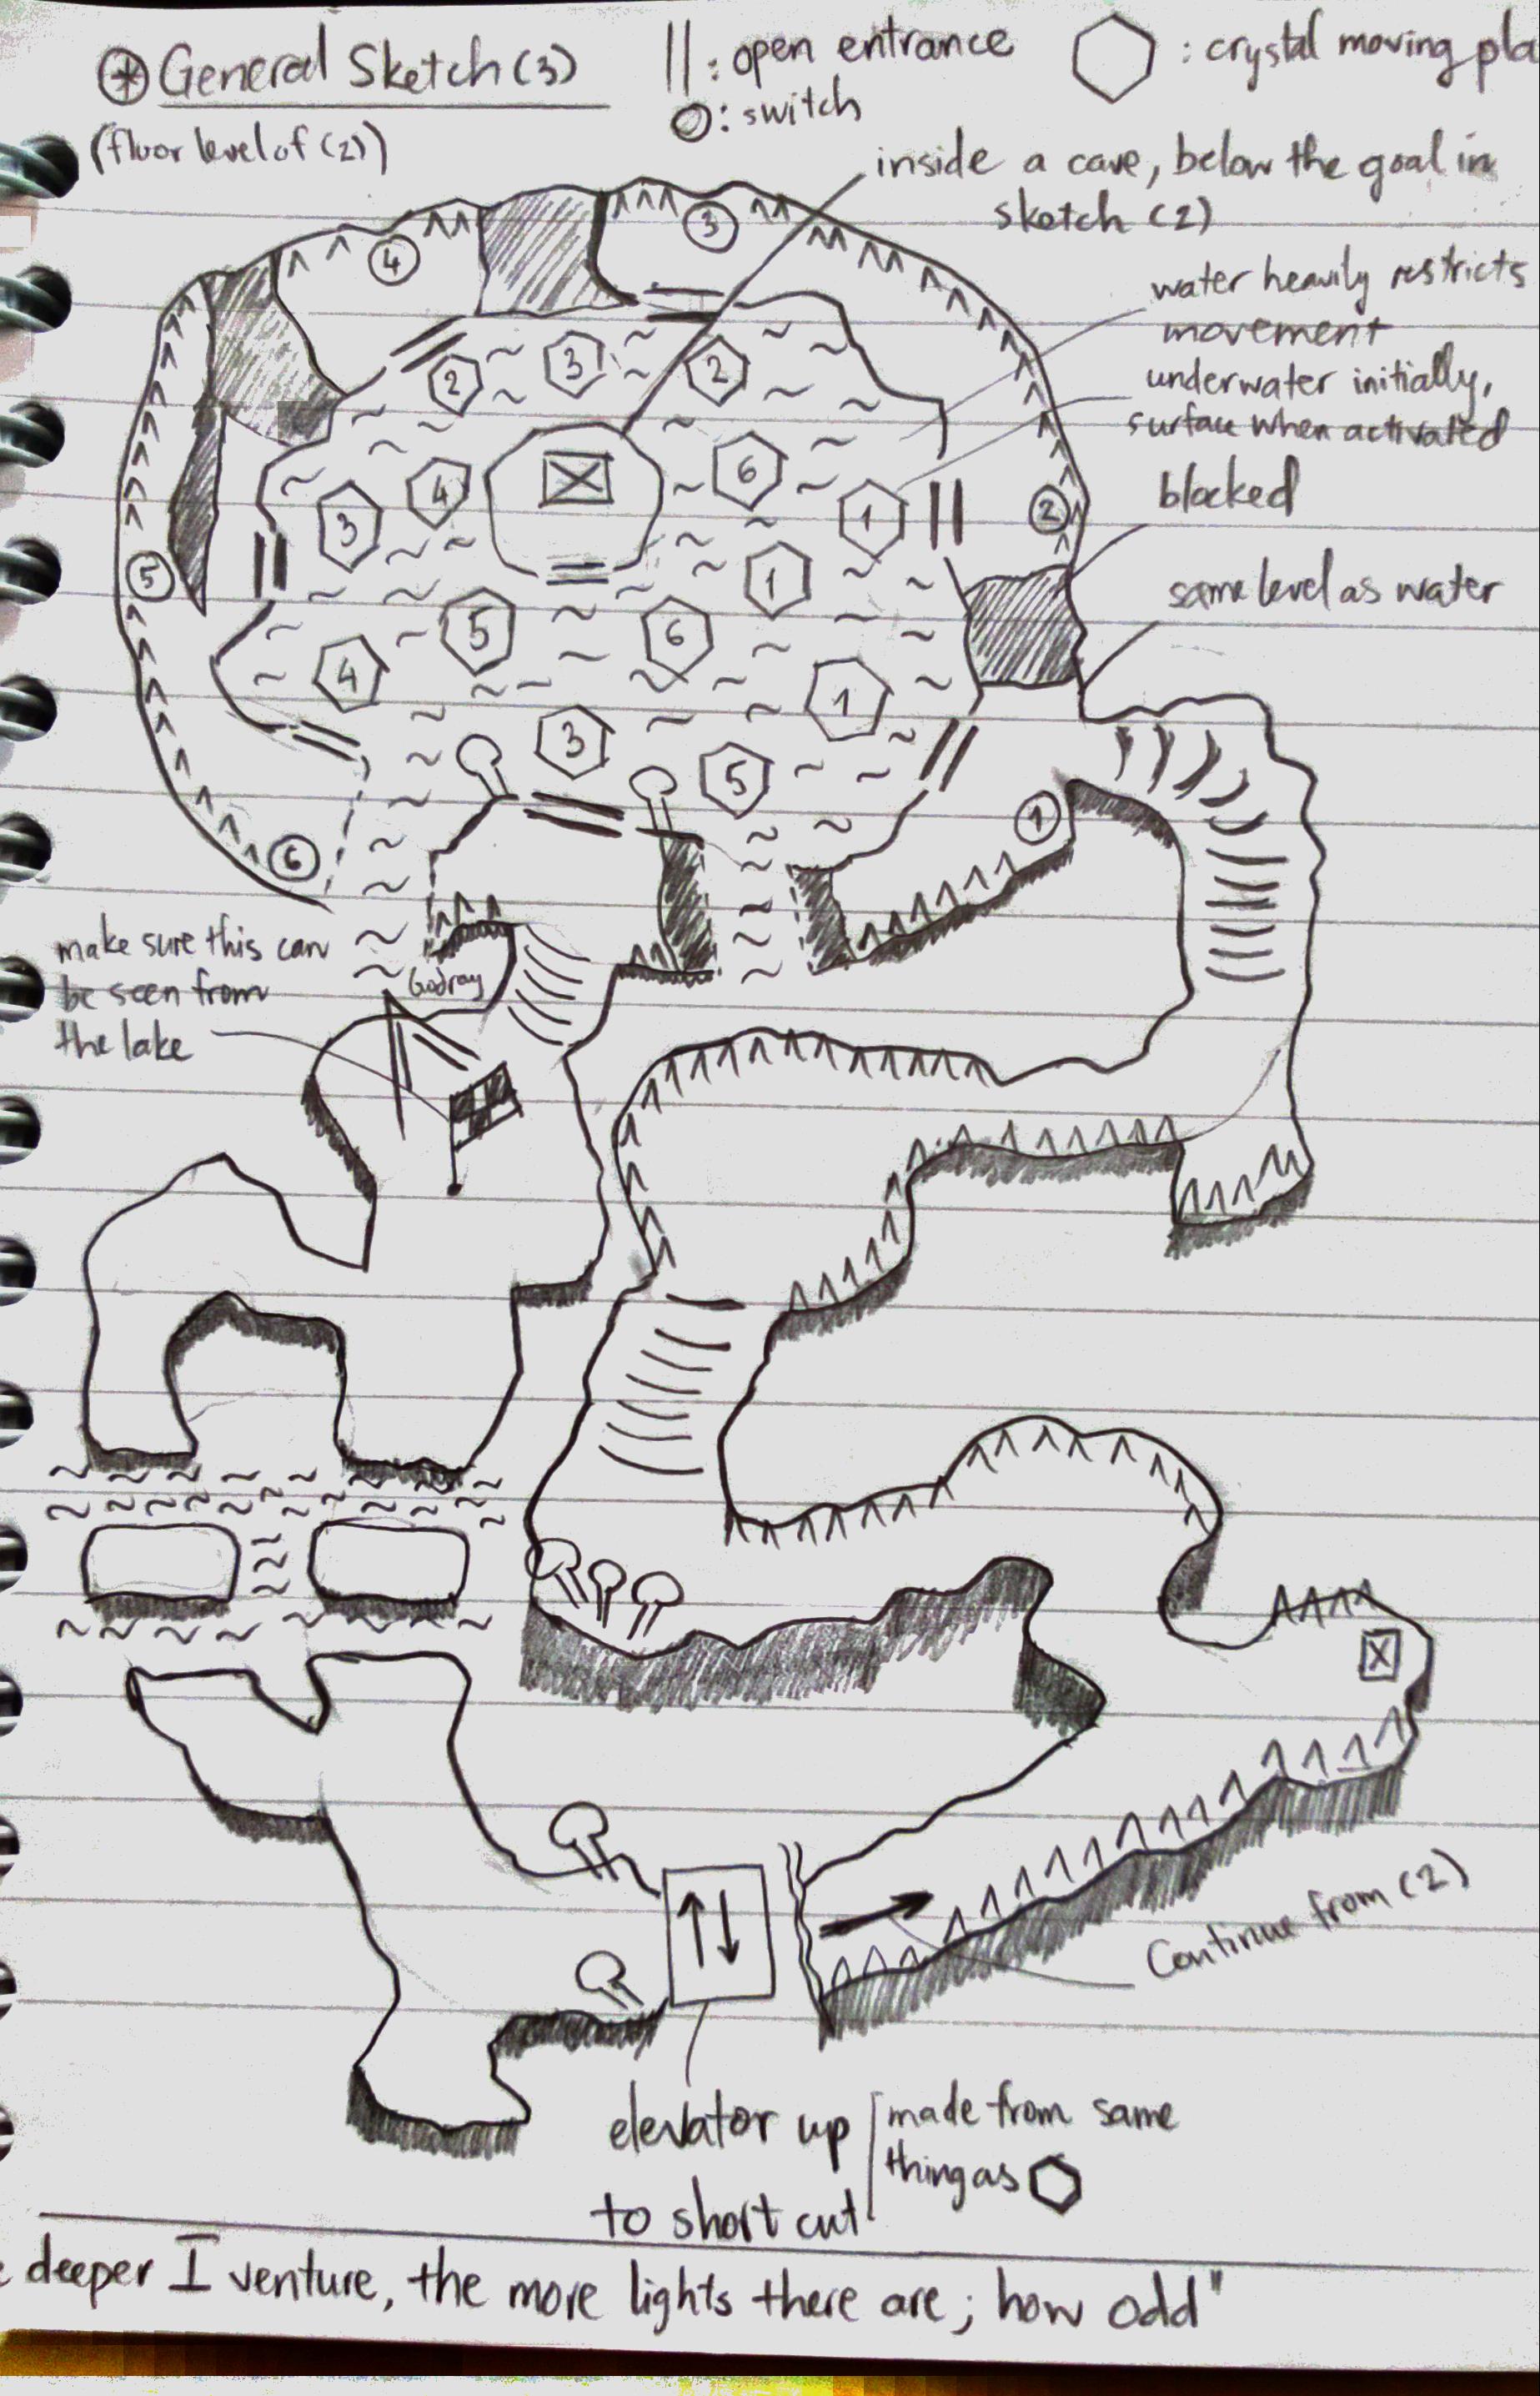 General Sketch (3)
(fluor level of (2))
|| : open entrance
: switch
: crystal moving pla
inside a cave, below the goal in
sketch (2)
water heavily restricts
movement
underwater initially,
surface when activated
blocked
same level as water
4
3
2
3
2
2
4
6
3
1
5
1
5
6
4
1
3
5
1
6
make sure this can
be seen from
the lake
Godray
Continue from (2)
elevator up
to short cut
made from same
thing as
deeper I venture, the more lights there are; how odd"